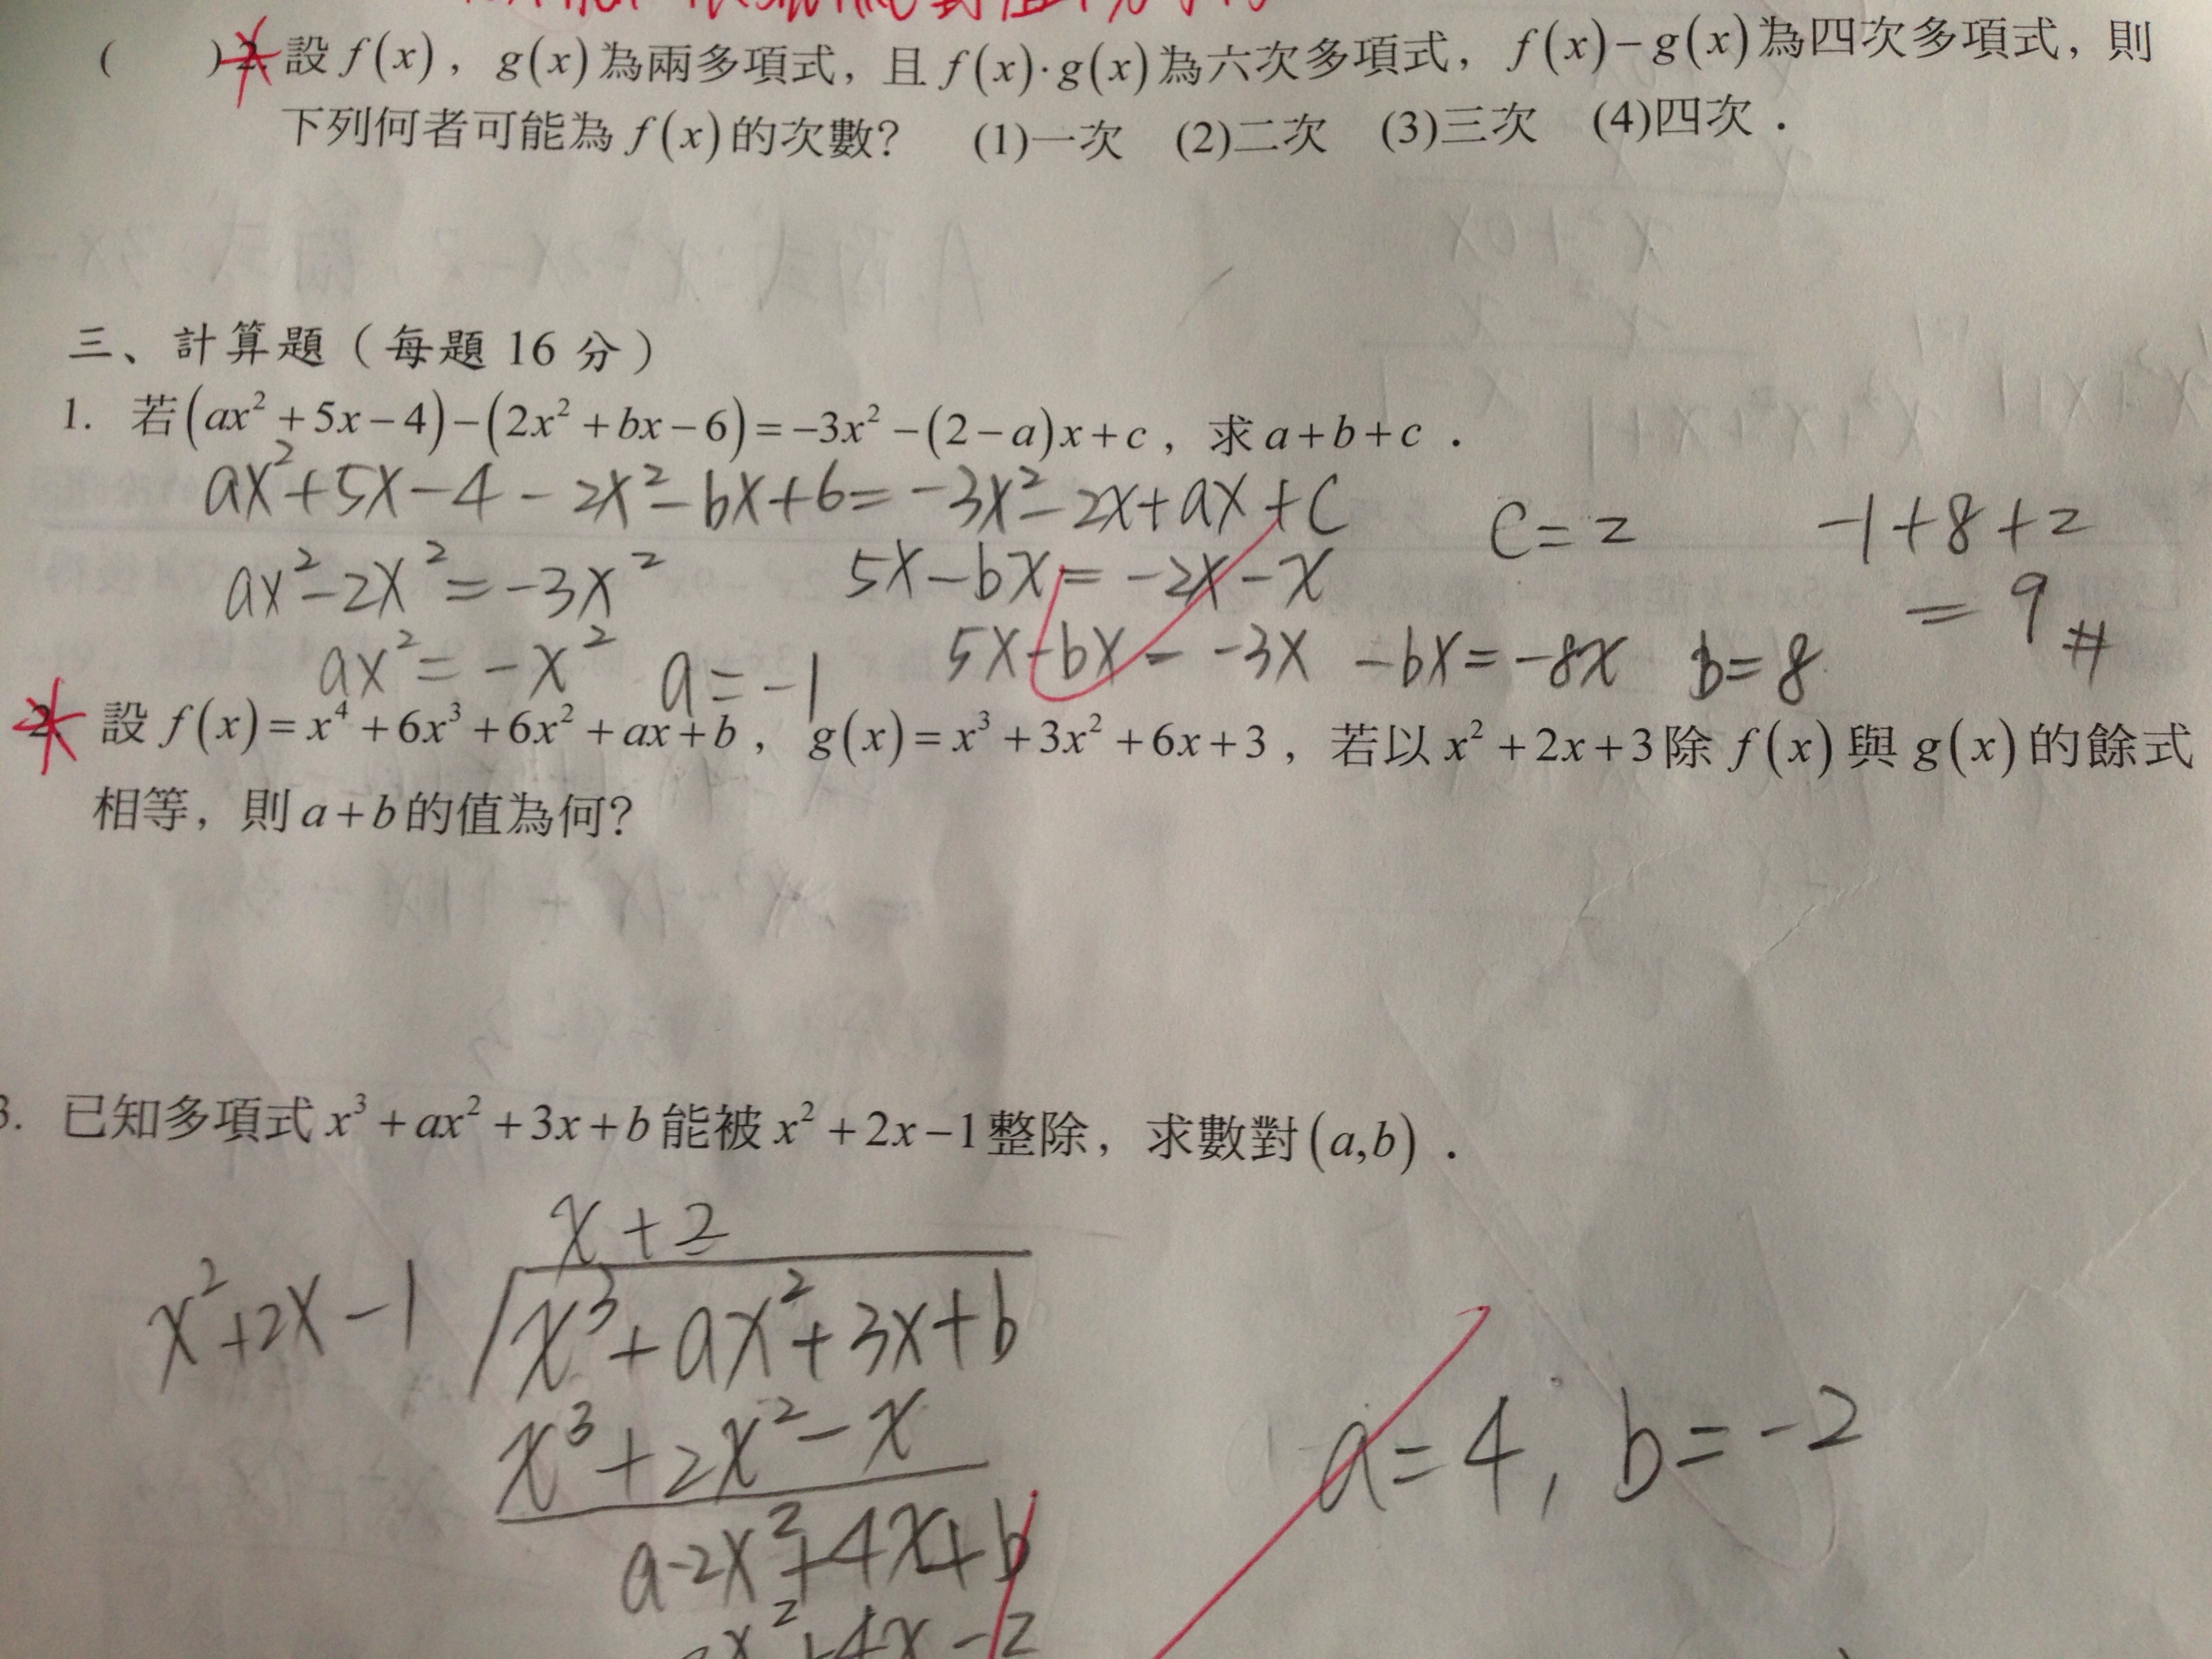 ( ) 2. 設 f(x)，g(x) 為兩多項式，且 f(x)·g(x) 為六次多項式，f(x)−g(x) 為四次多項式，則
下列何者可能為 f(x) 的次數？ (1)一次 (2)二次 (3)三次 (4)四次．
三、計算題（每題 16 分）
1. 若(ax²+5x−4)−(2x²+bx−6)=−3x²−(2−a)x+c，求 a+b+c．
ax²+5x−4−2x²−bx+6=−3x²−2x+ax+c
c=2 −1+8+2
ax²−2x²=−3x² 5x−bx=−2x−x
=9#
ax²=−x² a=−1 5x−bx=−3x −bx=−8x b=8
2. 設 f(x)=x⁴+6x³+6x²+ax+b，g(x)=x³+3x²+6x+3，若以 x²+2x+3 除 f(x) 與 g(x) 的餘式
相等，則 a+b 的值為何？
3. 已知多項式 x³+ax²+3x+b 能被 x²+2x−1 整除，求數對(a,b)．
x+2
x²+2x−1 x³+ax²+3x+b
x³+2x²−x
a=4, b=−2
a-2x²+4x+b
x²+4x−2